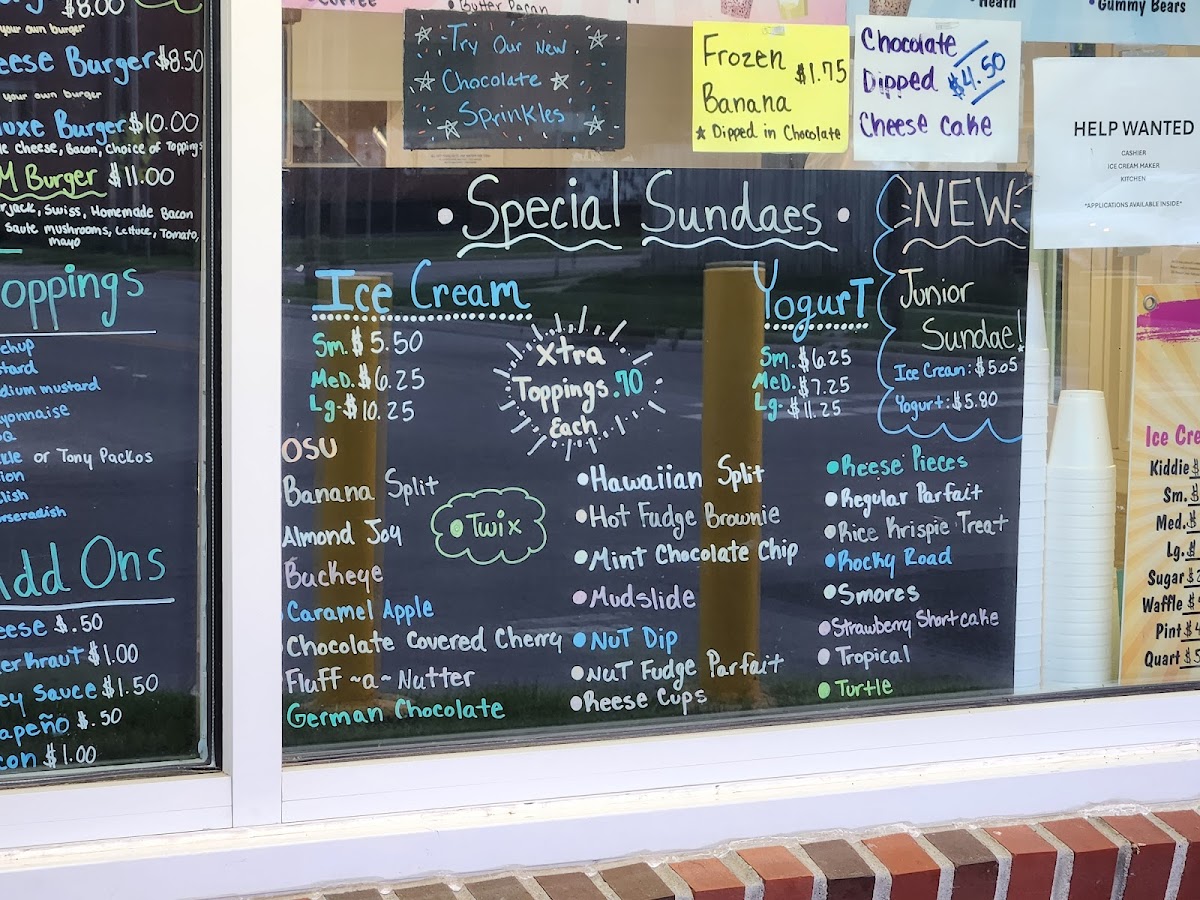 $8.00
your own burger
Burger $8.50
your own burger
Burger $10.00
Cheese, Bacon, Choice of Toppings
M Burger $11.00
Swiss, Homemade Bacon
Saute mushrooms, Lettuce, Tomato,
mayo
mustard
or Tony Packos
Add Ons
$.50
$1.00
Sauce $1.50
$.50
$1.00
• Butter Pecan
Heath
• Gummy Bears
Try Our New
Chocolate
Sprinkles
Frozen
Banana $1.75
★ Dipped in Chocolate
Chocolate
Dipped $4.50
Cheese Cake
HELP WANTED
CASHIER
ICE CREAM MAKER
KITCHEN
*APPLICATIONS AVAILABLE INSIDE*
• Special Sundaes •
Ice Cream
Sm. $5.50
Med. $6.25
Lg - $10.25
Xtra
Toppings .70
Each
Yogurt
Sm. $6.25
Med. $7.25
Lg - $11.25
NEW
Junior
Sundae!
Ice Cream: $5.05
Yogurt: $5.80
OSU
Banana Split
Almond Joy
Buckeye
Caramel Apple
Chocolate Covered Cherry
Fluff ~a~ Nutter
German Chocolate
• Twix
• Hawaiian Split
• Hot Fudge Brownie
• Mint Chocolate Chip
• Mudslide
• Nut Dip
• Nut Fudge Parfait
• Reese Cups
• Reese Pieces
• Regular Parfait
• Rice Krispie Treat
• Rocky Road
• Smores
• Strawberry Shortcake
• Tropical
• Turtle
Ice Cre
Kiddie $
Sm. $
Med. $
Lg. $
Sugar $
Waffle $
Pint $
Quart $